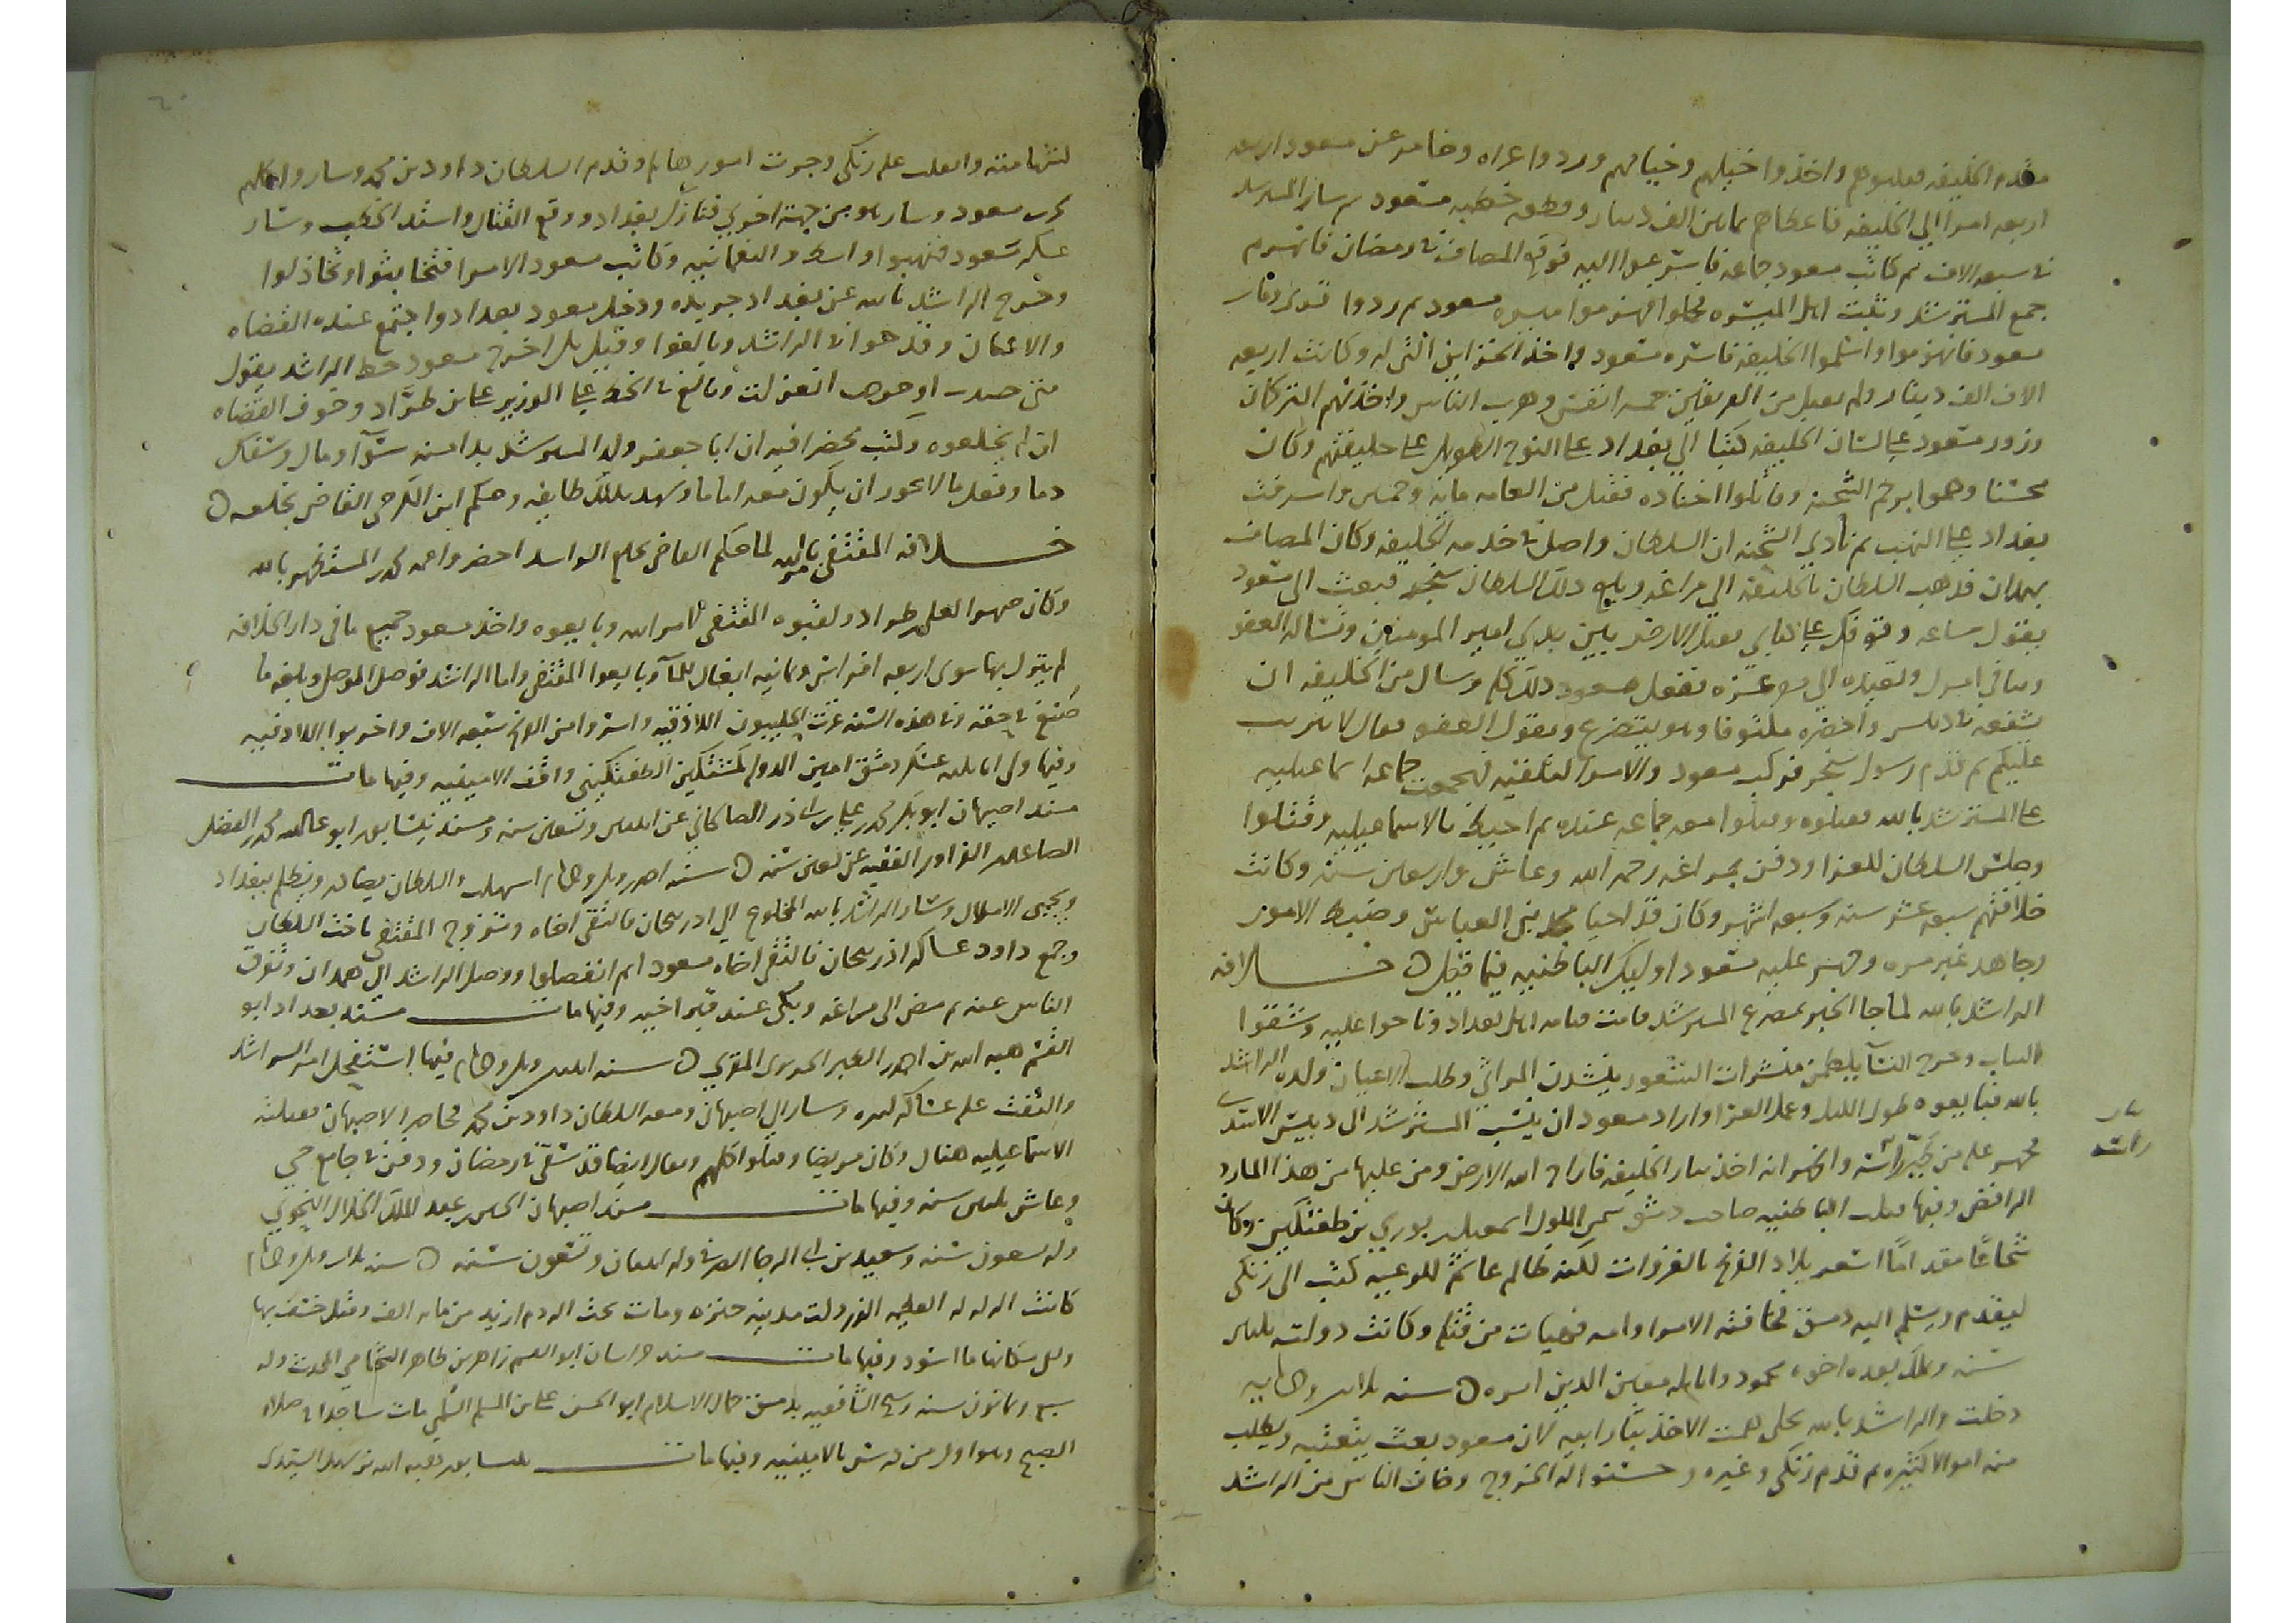 مقدم الخليفه فعلبوهم واخذوا خيلهم وخيامهم وردوا عراه وخامر عن مسعود اربعه
اربعه امرا الي الخليفه فاعطاهم ثمانين الف دينار وقطع خطبه مسعود ثم سار المسترشد
في سبعه الاف ثم كاتب مسعود جماعه فاسترعبوا اليه فوقع المصاف في رمضان فانهزم
جمع المسترشد وثبت اهل الميسره فحملوا فهزموا ميسره مسعود ثم ردوا
مسعود فانهزموا واسلموا الخليفه فاسره مسعود واخذ الخزاين التي له وكانت اربعه
الاف الف دينار ولم يقتل من الفريقين خمسه انفس وهرب الناس واخذتهم التركمان
وزور مسعود علي لسان الخليفه كتبا الي بغداد علي النوح الطويل علي خليفتهم وكان
وهموا برجم الشحنه وقاتلوا اجناده فقتل من العامه مايه وخمسين واشرفت
بغداد علي النهب ثم نادي الشحنه ان السلطان واصل في خدمه الخليفه وكان المصاف
بهمدان فذهب السلطان بالخليفه الي مراغه وبلغ ذلك السلطان سنجر فبعث الي مسعود
يقول ساعه وقوفك علي كتابي تقبل الارض بين يدي امير المومنين وتساله العفو
وتعيده الي مقر عزه ففعل مسعود ذلك كله وسال من الخليفه ان
يشفعه في دبيس واحضره مكتوفا وهو يتضرع ويقول العفو فقال لا تثريب
عليكم ثم قدم رسول سنجر فركب مسعود والامرا لتلقيه فهجمت جماعه اسماعيليه
علي المسترشد بالله فقتلوه وقتلوا معه جماعه عنده ثم احيط بالاسماعيليه وقتلوا
وجلس السلطان للعزا ودفن بمراغه رحمه الله وعاش واربعين سنه وكانت
خلافتهم سبعه عشر سنه وسبعه اشهر وكان قد احيا بني العباس وضبط الامور
وجاهد غير مره وجهز عليه مسعود اوليك الباطنيه فيما قيل ه خلافه
الراشد بالله لما جا الخبر بمصرع المسترشد قامت قيامه اهل بغداد وناحوا عليه وشققوا
الثياب وخرج النسآ يلطمن منشرات الشعور ينشدن المراثي وطلب الاعيان ولده الراشد
بالله فبايعوه طول الليل وعمل العزا واراد مسعود ان ينسب المسترشد الي دبيس الاسدي
فجهز عليه من واظهر انه اخذ بثار الخليفه فاراح الله الارض ومن عليها من هذا المارد
الرافضي وفيها قتلت الباطنيه صاحب دمشق شمس الملوك اسمعيل بن بوري بن طغتكين وكان
شجاعا مقداما استعر بلاد الفرنج بالغزوات لكنه ظالم غاشم للرعيه كتب الي زنكي
ليقدم ويسلم اليه دمشق فخافته الامرا وامه فهيات من قتله وكانت دولته ثلاث
سنه وملك بعده اخوه محمود واتابكه معين الدين اسره ه سنه ثلاثين وخمسمايه
دخلت والراشد بالله علي همت الاخذ بثار ابيه لان مسعود بعث يتعتبه ويطلب
منه اموالا كثيره ثم قدم زنكي وغيره وحسنوا له الخروج وخاف الناس من الراشد
لشهامته وانقلب عليه زنكي وجرت امور هايله وقدم السلطان داود بن محمد وساروا كلهم
لحرب مسعود وسار هو من جهة اخري فنازل بغداد ووقع القتال واشتد الخطب وسار
عسكر مسعود فنهبوا واسط والنعمانيه وكاتب مسعود الامرا فتخابثوا وتخاذلوا
وخرج الراشد بالله عن بغداد جريده ودخل مسعود بغداد واجتمع عنده القضاه
والاعيان وقدحوا في الراشد وبالغوا وقيل بل اخرج مسعود خط الراشد يقول
متي جندت او خرجت انعزلت وبالغ في الحط علي الوزير علي بن طراد وخوف القضاه
ان لم يخلعوه وكتب محضرا فيه ان ابا جعفر ولد المسترشد بدا منه سوآ ومال وسفك
دما وفعل ما لا يجوز ان يكون معه اماما وشهد بذلك طايفه وحكم ابن الكرخي القاضي بخلعه ه
خلافه المقتفي لامر الله لما حكم القاضي بخلع الراشد احضر واعمه محمد بن المستظهر بالله
وكان صهر العلي طراد ولقبوه المقتفي لامر الله وبايعوه واخذ مسعود جميع ما في دار الخلافه
لم يترك بها سوي اربعه افراس وثمانيه ابغال للمآ وبايعوا المقتفي واما الراشد فوصل الموصل وبلغه ما
صنع في حقه وفي هذه السنه غزت الحلبيون اللاذقيه واسروا من الفرنج سبعه الاف واخربوا اللاذقيه
وفيها ولي اتابكيه عسكر دمشق امين الدوله كمشتكين الطغتكيني واقف الامينيه وفيها مات
مسند اصبهان ابو بكر محمد بن علي بن ابي ذر الصالحاني عن اثنين وتسعين سنه ومسند نيسابور ابو عبد الله محمد بن الفضل
الصاعدي الفراوي الفقيه عن تسعين سنه ه سنه احدي وثلاثين وخمسمايه استهلت والسلطان يصادر ويظلم ببغداد
ويجبي الاموال وسار الراشد بالله المخلوع الي اذربيجان فالتقي اخاه وتزوج المقتفي باخت السلطان
وجمع داود عساكر اذربيجان فالتقي اخاه مسعود ثم انفصلوا ووصل الراشد الي همدان وتفرق
الناس عنه ثم مضي الي مراغه وبكي عند قبر ابيه وفيها مات مسند بغداد ابو
القسم هبه الله بن احمد الحريري المقري ه سنه اثنين وثلاثين وخمسمايه فيها استفحل امر الراشد
والتفت عليه عساكر كثيره وسار الي اصبهان ومعه السلطان داود بن محمد فحاصرا اصبهان فقتلته
الاسماعيليه هناك وكان مريضا وقتلوا كلهم ويقال ايضا قد سقي في رمضان ودفن في جامع جي
وعاش ثلاثين سنه وفيها مات مسند اصبهان الحسين بن عبد الملك الخلال النحوي
وله تسعون سنه وسعيد بن ابي الرجا الصيرفي وله اثنتان وتسعون سنه ه سنه ثلاث وثلاثين وخمسمايه
كانت الزلزله العظيمه التي زلزلت مدينه جنزه ومات تحت الردم ازيد من مايه الف وقيل خسف بها
وبقي مكانها ما اسود وفيها مات مسند خراسان ابو القسم زاهر بن طاهر الشحامي المحدث وله
سبع وثمانون سنه وشيخ الشافعيه بدمشق جمال الاسلام ابو الحسن علي بن المسلم السلمي مات ساجدا في صلاه
الصبح وهو اول من درس بالامينيه وفيها مات بنيسابور هبه الله بن سهل السيدي